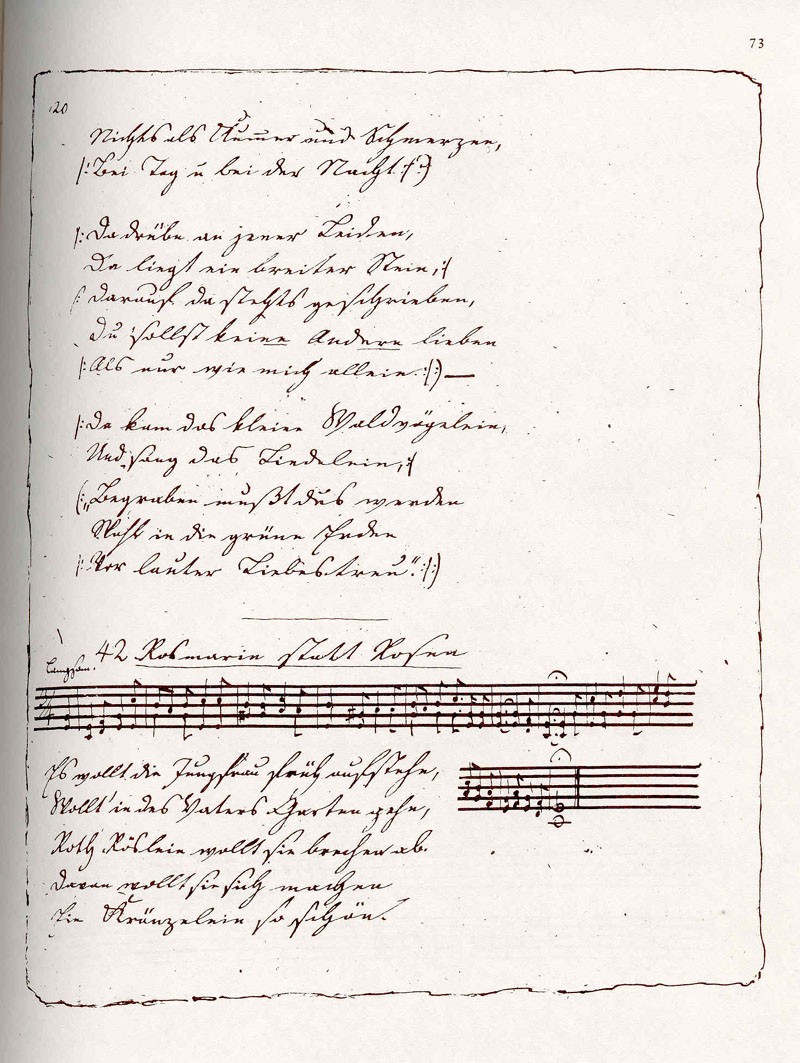 73
20
Nichts als Kummer und Schmerzen,
|: Bei Tag u bei der Nacht :|)
|: Da drübe an jener Leiden,
Da liegt ein breiter Stein, :|
|: Darauf da stehts geschrieben,
Du sollst keine Andere lieben
|: Als nur wie mich allein. :|) —
|: Da kam das kleine Waldvögelein,
Und sang das Liedelein, :|
(: „Begraben mußt dus werden
Wohl in die grüne Erden
|: Vor lauter Liebestreu". :|)
42 Rosmarin statt Rosen
Langsam.
Es wollt die Jungfrau früh aufstehn,
Wollt in des Vaters Garten gehn,
Roth Röslein wollt sie brechen ab.
Davon wollt sie sich machen
Ein Kränzelein so schön.